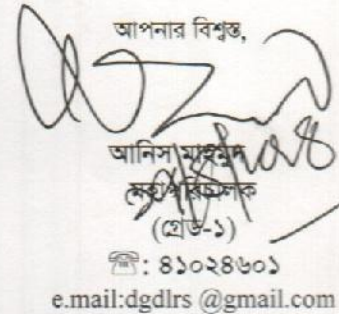 আপনার বিশ্বস্ত,
আনিস মাহমুদ
মহাপরিচালক
(গ্রেড-১)
☎: ৪১০২৪৬০১
e.mail:dgdlrs @gmail.com